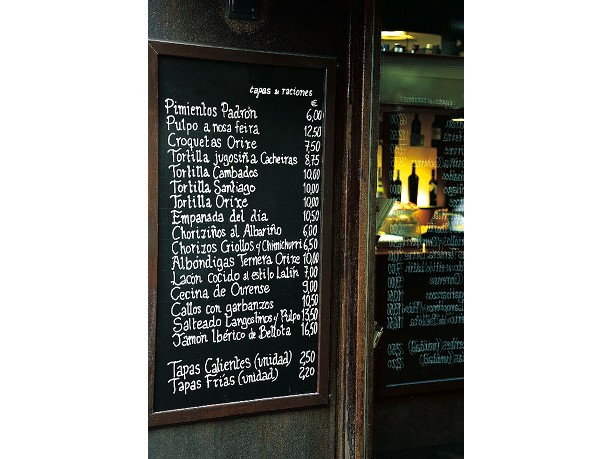 tapas & raciones
€
Pimientos Padrón 6,00
Pulpo a nosa feira 12,50
Croquetas Orixe 7,50
Tortilla jugosiña Cacheiras 8,75
Tortilla Cambados 10,00
Tortilla Santiago 10,00
Tortilla Orixe 10,00
Empanada del día 10,50
Choriziños al Albariño 6,00
Chorizos Criollos y Chimichurri 6,50
Albóndigas Ternera Orixe 10,00
Lacón cocido al estilo Lalín 7,00
Cecina de Ourense 9,00
Callos con garbanzos 10,50
Salteado Langostinos y Pulpo 13,50
Jamón Ibérico de Bellota 16,50
Tapas Calientes (unidad) 2,50
Tapas Frías (unidad) 2,20